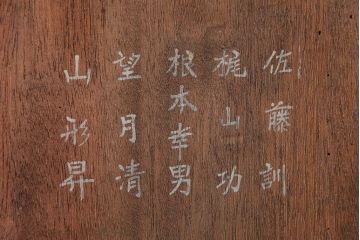 佐藤訓
梶山功
根本幸男
望月清
山形昇